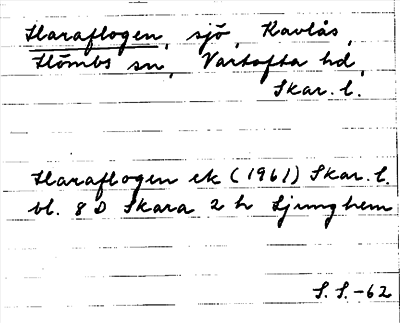 Haraflogen, sjö, Kavlås,
Hömbs sn, Vartofta hd,
Skar. l.
Haraflogen ek (1961) Skar. l.
bl. 8 D Skara 2 h Ljunghem
S. S. -62